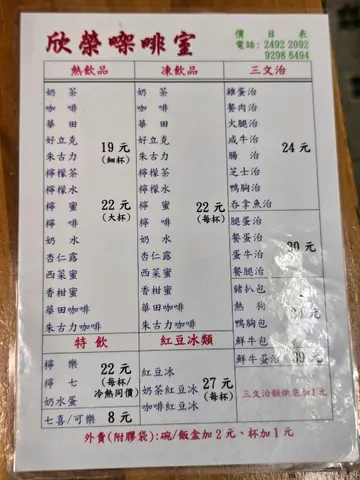 欣榮㗎啡室
價目表
電話: 2492 2092
9298 6494
熱飲品
奶茶
咖啡
華田
好立克
朱古力
檸檬茶
檸檬水
檸蜜
檸啡
奶水
杏仁露
西菜蜜
香柑蜜
華田咖啡
朱古力咖啡
19元
(細杯)
22元
(大杯)
凍飲品
奶茶
咖啡
華田
好立克
朱古力
檸檬茶
檸檬水
檸蜜
檸啡
奶水
杏仁露
西菜蜜
香柑蜜
華田咖啡
朱古力咖啡
22元
(每杯)
三文治
雞蛋治
餐肉治
火腿治
咸牛治
腸治
芝士治
鴨胸治
吞拿魚治
24元
腿蛋治
餐蛋治
蛋牛治
餐腿治
30元
豬扒包
熱狗
鴨胸包
元
鮮牛包
鮮牛蛋治
39元
三文治類烘底加1元
特飲
檸樂
檸七
奶水蛋
22元
(每杯/
冷熱同價)
七喜/可樂 8元
紅豆冰類
紅豆冰
奶茶紅豆冰
咖啡紅豆冰
27元
(每杯)
外賣(附膠袋):碗/飯盒加2元、杯加1元